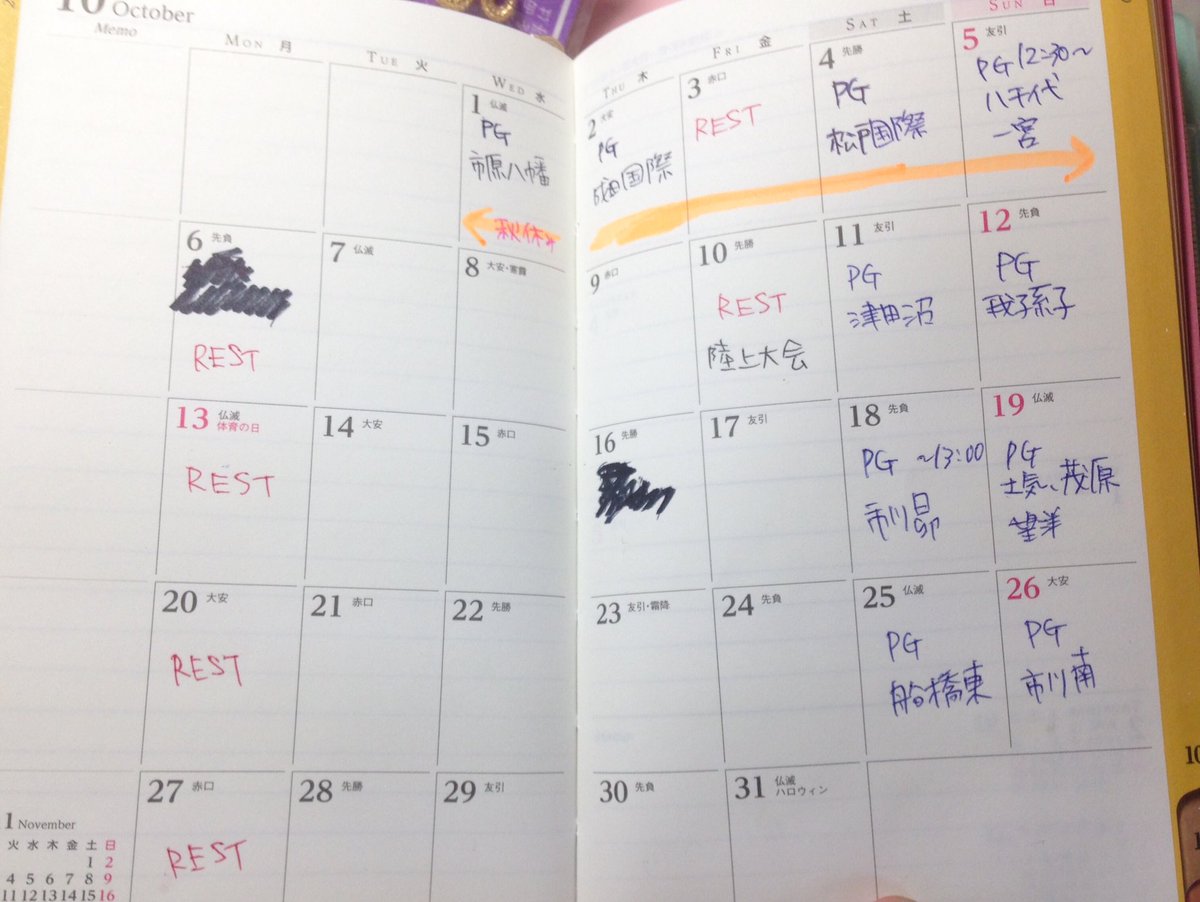 10 October
Memo
MON 月
TUE 火
WED 水
THU 木
FRI 金
SAT 土
SUN 日
1 仏滅
PG
市原八幡
秋休み
2 大安
PG
成田国際
3 赤口
REST
4 先勝
PG
松戸国際
5 友引
PG 12:30〜
八千代
一宮
6 先負
REST
7 仏滅
8 大安・寒露
9 赤口
10 先勝
REST
陸上大会
11 友引
PG
津田沼
12 先負
PG
我孫子
13 仏滅
体育の日
REST
14 大安
15 赤口
16 先勝
17 友引
18 先負
PG 〜13:00
市川昴
19 仏滅
PG
土気、茂原
望洋
20 大安
REST
21 赤口
22 先勝
23 友引・霜降
24 先負
25 仏滅
PG
船橋東
26 大安
PG
市川南
27 赤口
REST
28 先勝
29 友引
30 先負
31 仏滅
ハロウィン
1 November
火 水 木 金 土 日
1 2
4 5 6 7 8 9
11 12 13 14 15 16
10